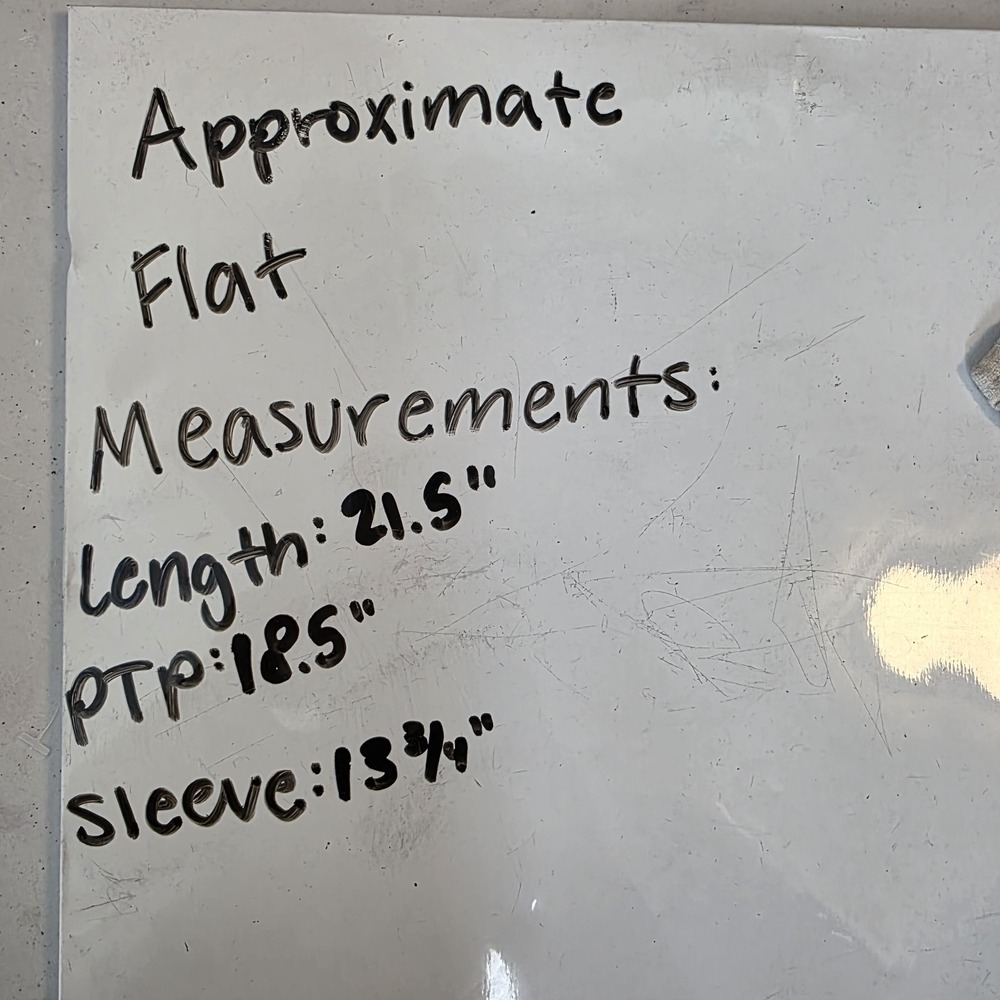 Approximate
Flat
Measurements:
Length: 21.5"
PTP: 18.5"
Sleeve: 13 3/4"